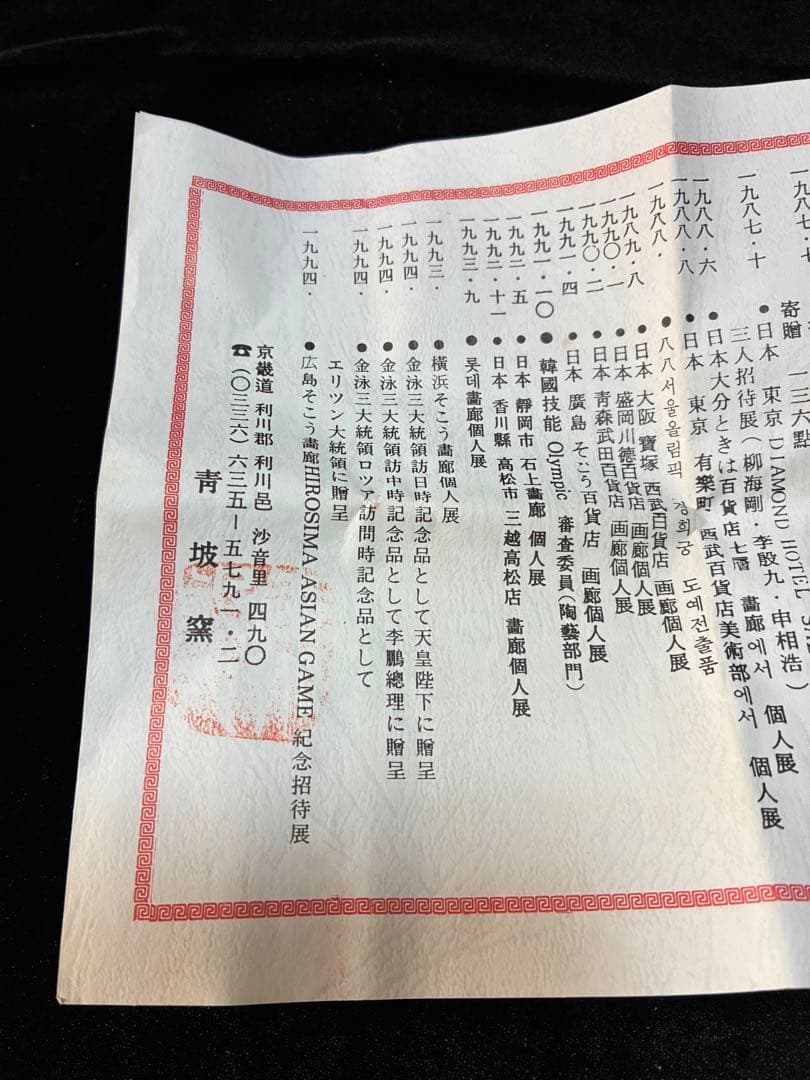 一九八七・十
寄贈 一三六點
一九八七・十
●日本 東京 DIAMOND HOTEL
三人招待展(柳海剛・李殷九・申相浩)
●日本大分ときは百貨店七層 畵廊에서 個人展
一九八八・六
●日本 東京 有樂町 西武百貨店美術部에서 個人展
一九八八・八
●八八서울올림픽 경희궁 도예전출품
一九八八・
●日本 大阪 寶塚 西武百貨店 画廊個人展
一九八九・八
●日本 盛岡川德百貨店 画廊個人展
一九九〇・一
●日本 青森武田百貨店 画廊個人展
一九九〇・二
●日本 廣島 そごう百貨店 画廊個人展
一九九一・四
●韓國技能 Olympic 審査委員(陶藝部門)
一九九一・一〇
●日本 靜岡市 石上畵廊 個人展
一九九二・五
●日本 香川縣 高松市 三越高松店 畵廊個人展
一九九二・十一
●롯데畵廊個人展
一九九三・九
●橫浜そこう畵廊個人展
一九九三・
●金泳三大統領訪日時記念品として天皇陛下に贈呈
一九九四・
●金泳三大統領訪中時記念品として李鵬總理に贈呈
一九九四・
●金泳三大統領ロツア訪問時記念品として
一九九四・
エリツン大統領に贈呈
●広島そこう畵廊HIROSIMA ASIAN GAME 紀念招待展
一九九四・
京畿道 利川郡 利川邑 沙音里 四九〇
☎(〇三三六)六三五ー五七九一・二
青坡窯